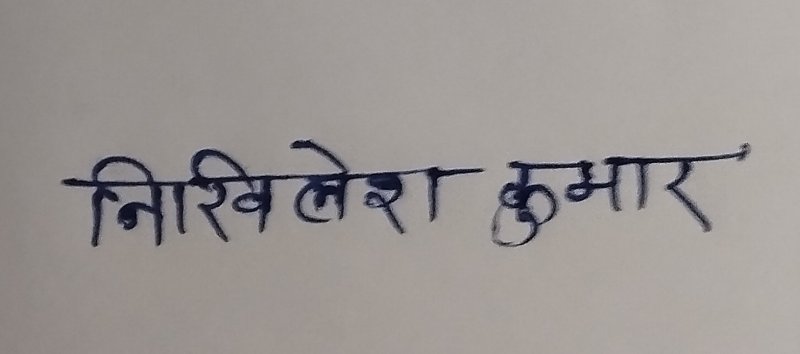 निखिलेश कुमार